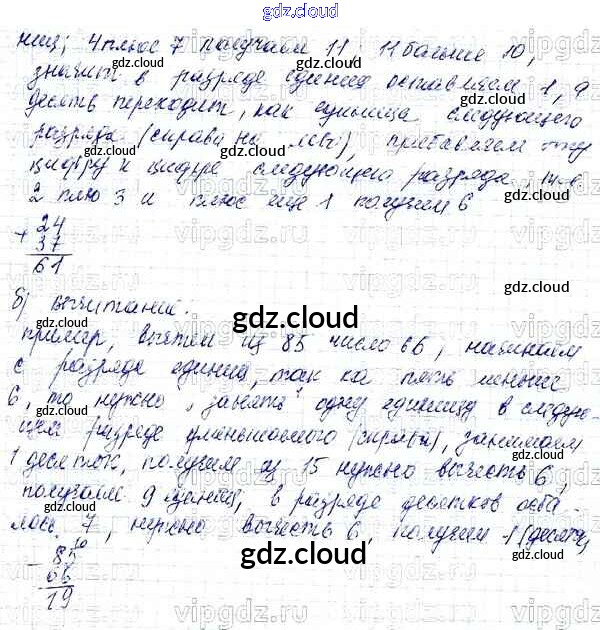 gdz.cloud
ниц; 4 плюс 7 получаем 11. 11 больше 10,
значит в разряде единиц оставляем 1, а
десять переходит, как единица следующего
разряда (справа на лево), прибавляем эту
цифру к цифре следующего разряда, т.е.
2 плю 3 и плюс ещё 1 получем 6
+ 24
37
61
gdz.cloud
б) вычитание:
пример, вычтем из 85 число 66, начинаем
с разряда единиц, так ка пять меньше
6, то нужно "занять" одну единицу в следую-
щем разряде уменьшаемого (справа), занимаем
1 десяток, получим из 15 нужно вычесть 6,
получаем 9 единиц, в разряде десятков оста-
лось 7, нужно вычесть 6, получим 1 (десяток)
10
- 85
66
19
gdz.cloud